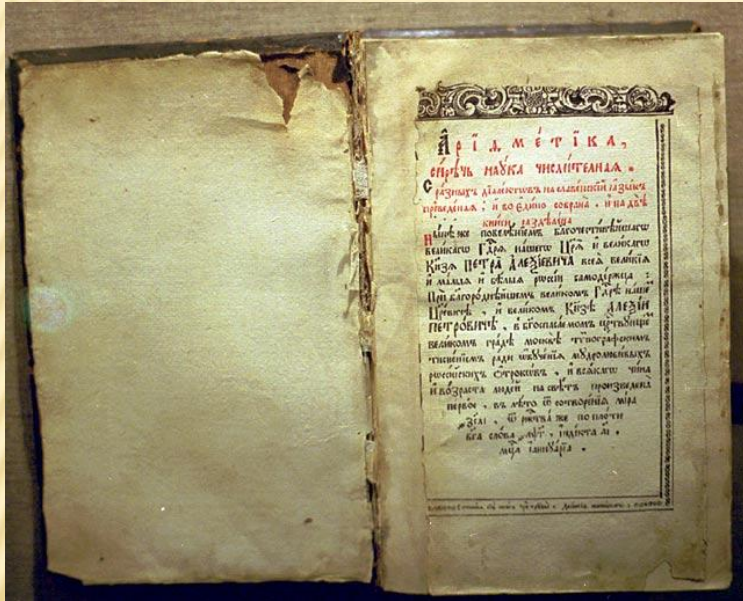 А҆ріѳме́тїка,
си́рѣчь нау́ка числи́телная.
С̾ ра́зныхъ дїале́ктовъ на славе́нскїй ꙗ҆зы́къ
преведе́ная, и҆ во є҆ди́но собрана̀, и҆ на двѣ̀
кни́ги раздѣлена̀
Ны́нѣ же повелѣ́нїемъ благочести́вѣйшагѡ
вели́кагѡ Гдⷭ҇рѧ на́шегѡ Цр҃ѧ̀ и҆ вели́кагѡ
Кн҃зѧ ПЕТРА̀ А҆ЛЕѮІ́ЕВИЧА всеѧ̀ вели́кїѧ
и҆ ма́лыѧ и҆ бѣ́лыѧ рѡссі́и самоде́ржца:
Прѝ благоро́днѣйшемъ вели́комъ Гдⷭ҇рѣ̀ на́шемъ
Цр҃е́вичѣ, и҆ вели́комъ Кн҃зѣ А҆ЛЕѮІ́И
ПЕТРО́ВИЧѢ, в̾ бг҃оспаса́емомъ ца́рствующемъ
вели́комъ гра́дѣ москвѣ̀ тѷпогра́фскимъ
тисне́нїемъ ра́ди ѡ҆буче́нїѧ мꙋдролюби́выхъ
рѡссі́йскихъ ѻ҆́трокѡвъ, и҆ всѧ́кагѡ чи́на
и҆ во́зраста люде́й на свѣ́тъ произведена̀
пе́рвое, въ лѣ́то ѿ сотворе́нїѧ мі́ра
҂зсаі, ѿ ржⷭ҇тва̀ же по пло́ти
бг҃а сло́ва ҂аѱг, і҆ндї́кта аі,
мцⷭ҇а і҆аннꙋа́рїа.